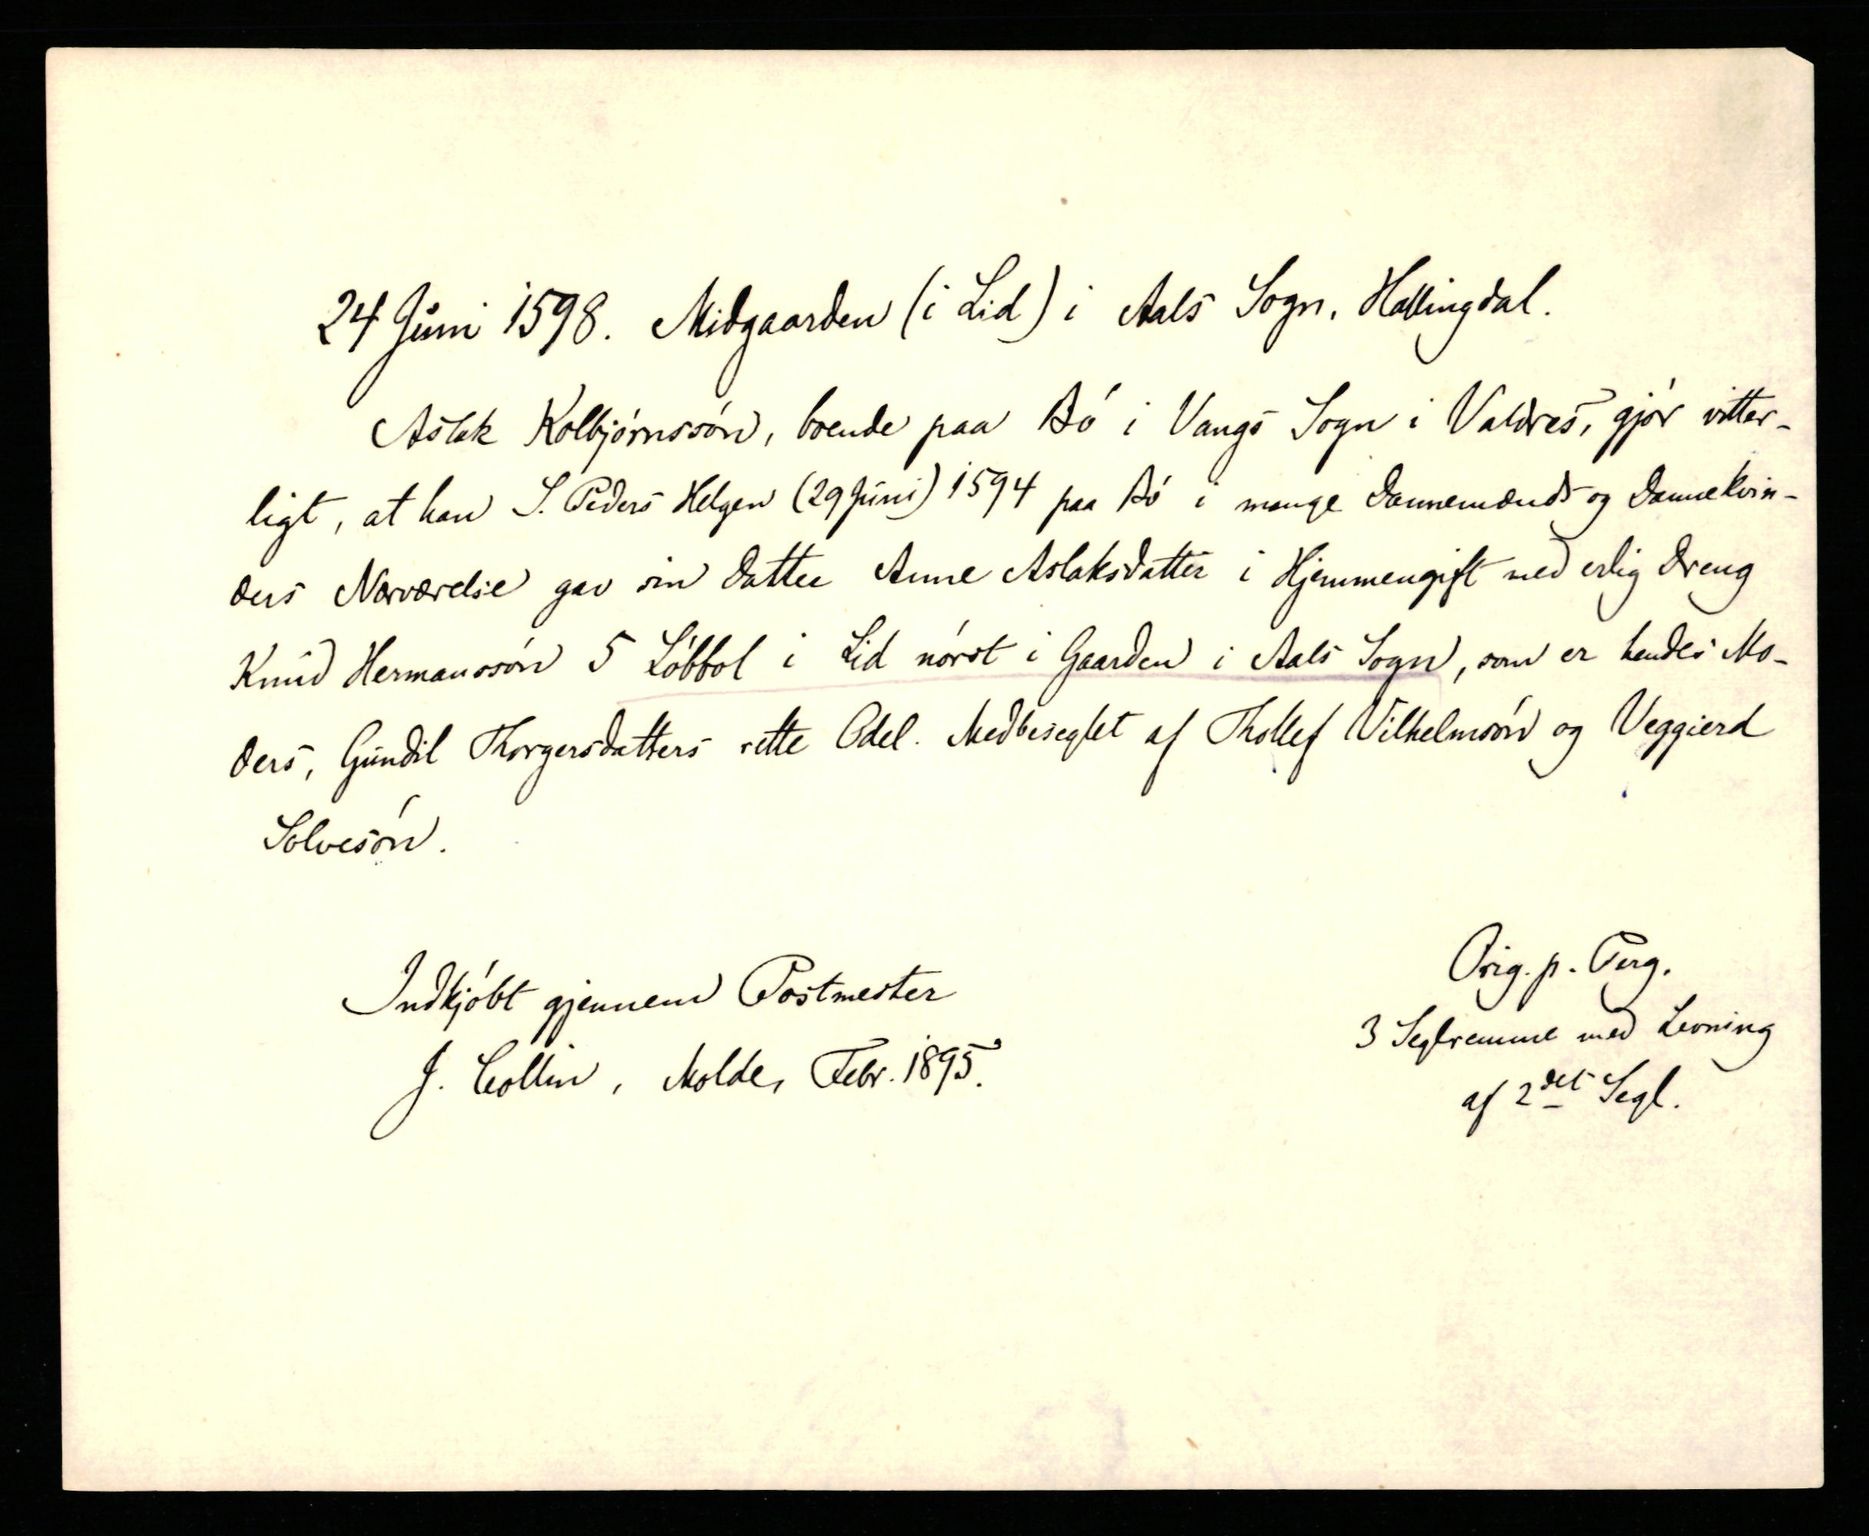 24 Juni 1598. Midgaarden (i Lid) i Aals Sogn, Hallingdal.
Aslak Kolbjórnssón, boende paa Bó i Vangs Sogn i Valdres, gjór vitter-
ligt, at han S. Peders Helgen (29 Juni) 1594 paa Bó i mange Dannemænds og Dannekvin-
ders Nærværelse gav sin Datter Anne Aslaksdatter i Hjemmengift med erlig Dreng
Knud Hermanssón 5 Lóbbol i Lid nórst i Gaarden i Aals Sogn, som er hendes Mo-
ders, Gundil Thorgersdatters rette Odel. Medbeseglet af Thollef Vilhelmsón og Veggierd
Solvesón.
Indkjóbt gjennem Postmester
J. Collin, Molde, Febr. 1895.
Orig. p. Perg.
3 Seglremme med Levning
af 2det Segl.